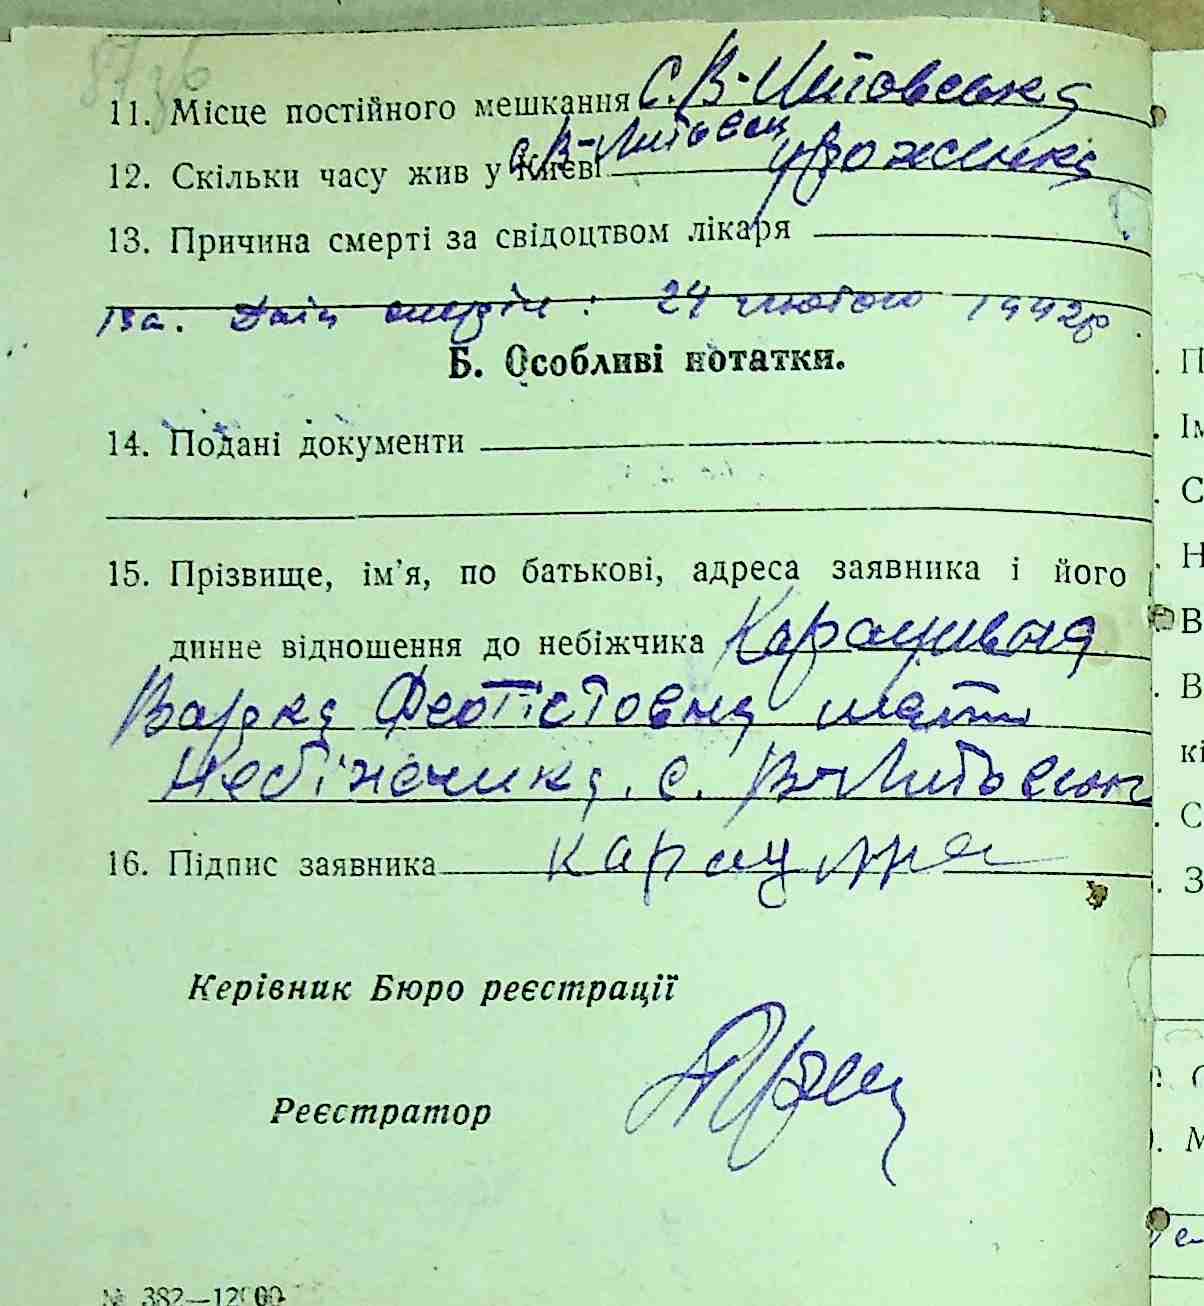 87зв
11. Місце постійного мешкання с. В-Литовська
12. Скільки часу жив у Києві с. В-Литовец уроженка
13. Причина смерті за свідоцтвом лікаря
13а. Дата смерти: 24 лютого 1942р.
Б. Особливі нотатки.
14. Подані документи
15. Прізвище, ім'я, по батькові, адреса заявника і його
динне відношення до небіжчика
Варка Феотістовна мати
небіжчика. с. В-Литовськ
16. Підпис заявника
Керівник Бюро реєстрації
Реєстратор
№ 382—12000
П
Ім
С
Н
В
В
кі
С
З